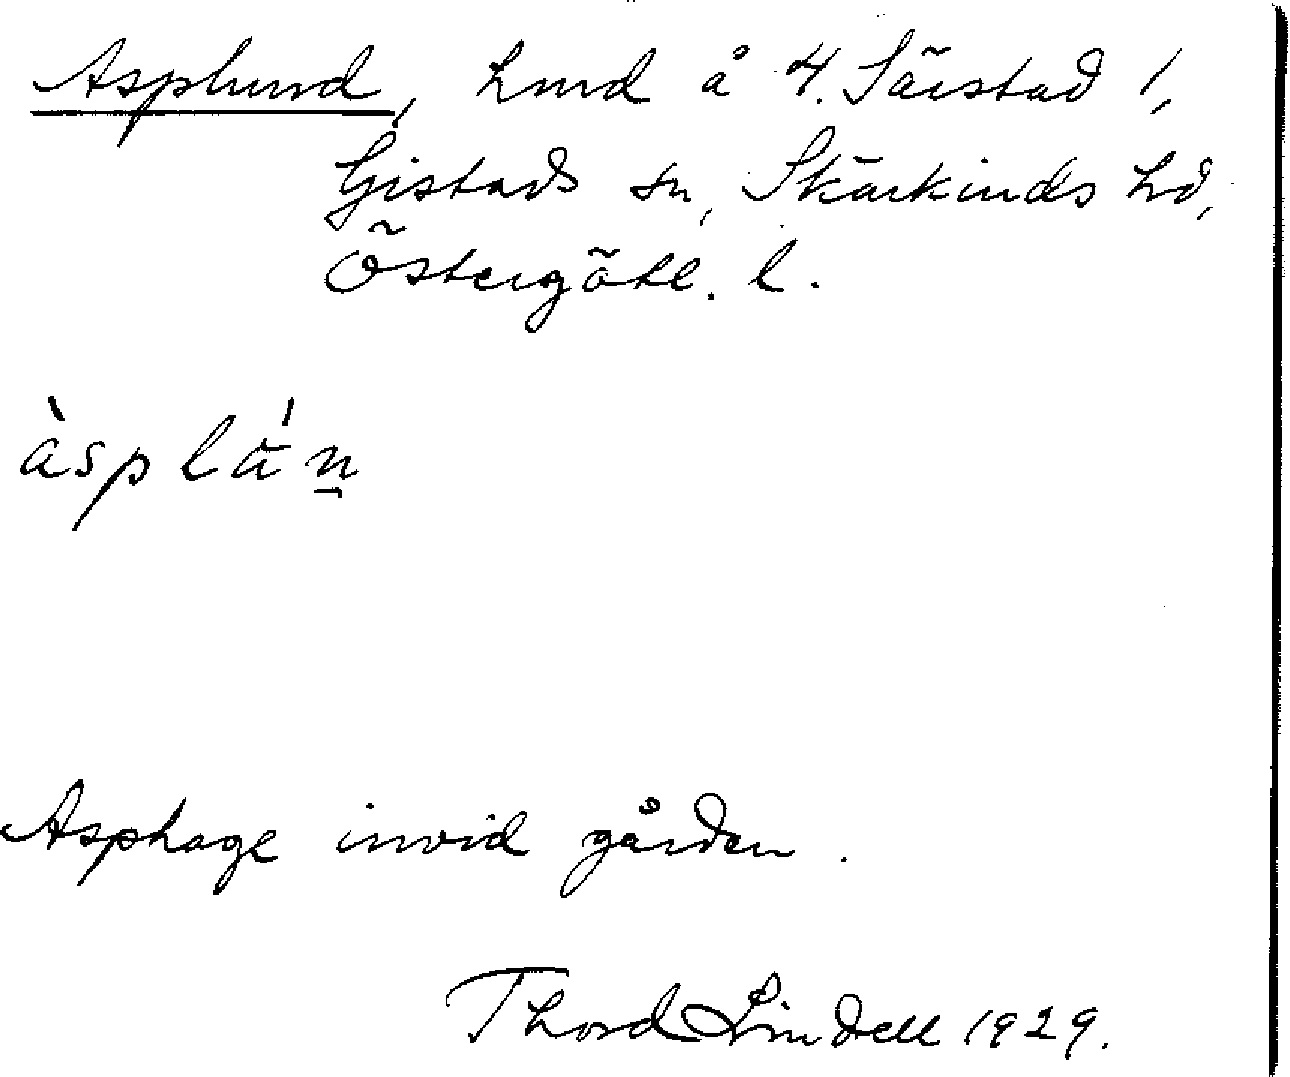 Asplund, Lund å 4. Särstad 1,
Gistads sn, Skärkinds hd,
Östergötl. l.
àsplá̈n̲
Asphage invid gården.
Thord Lindell 1929.